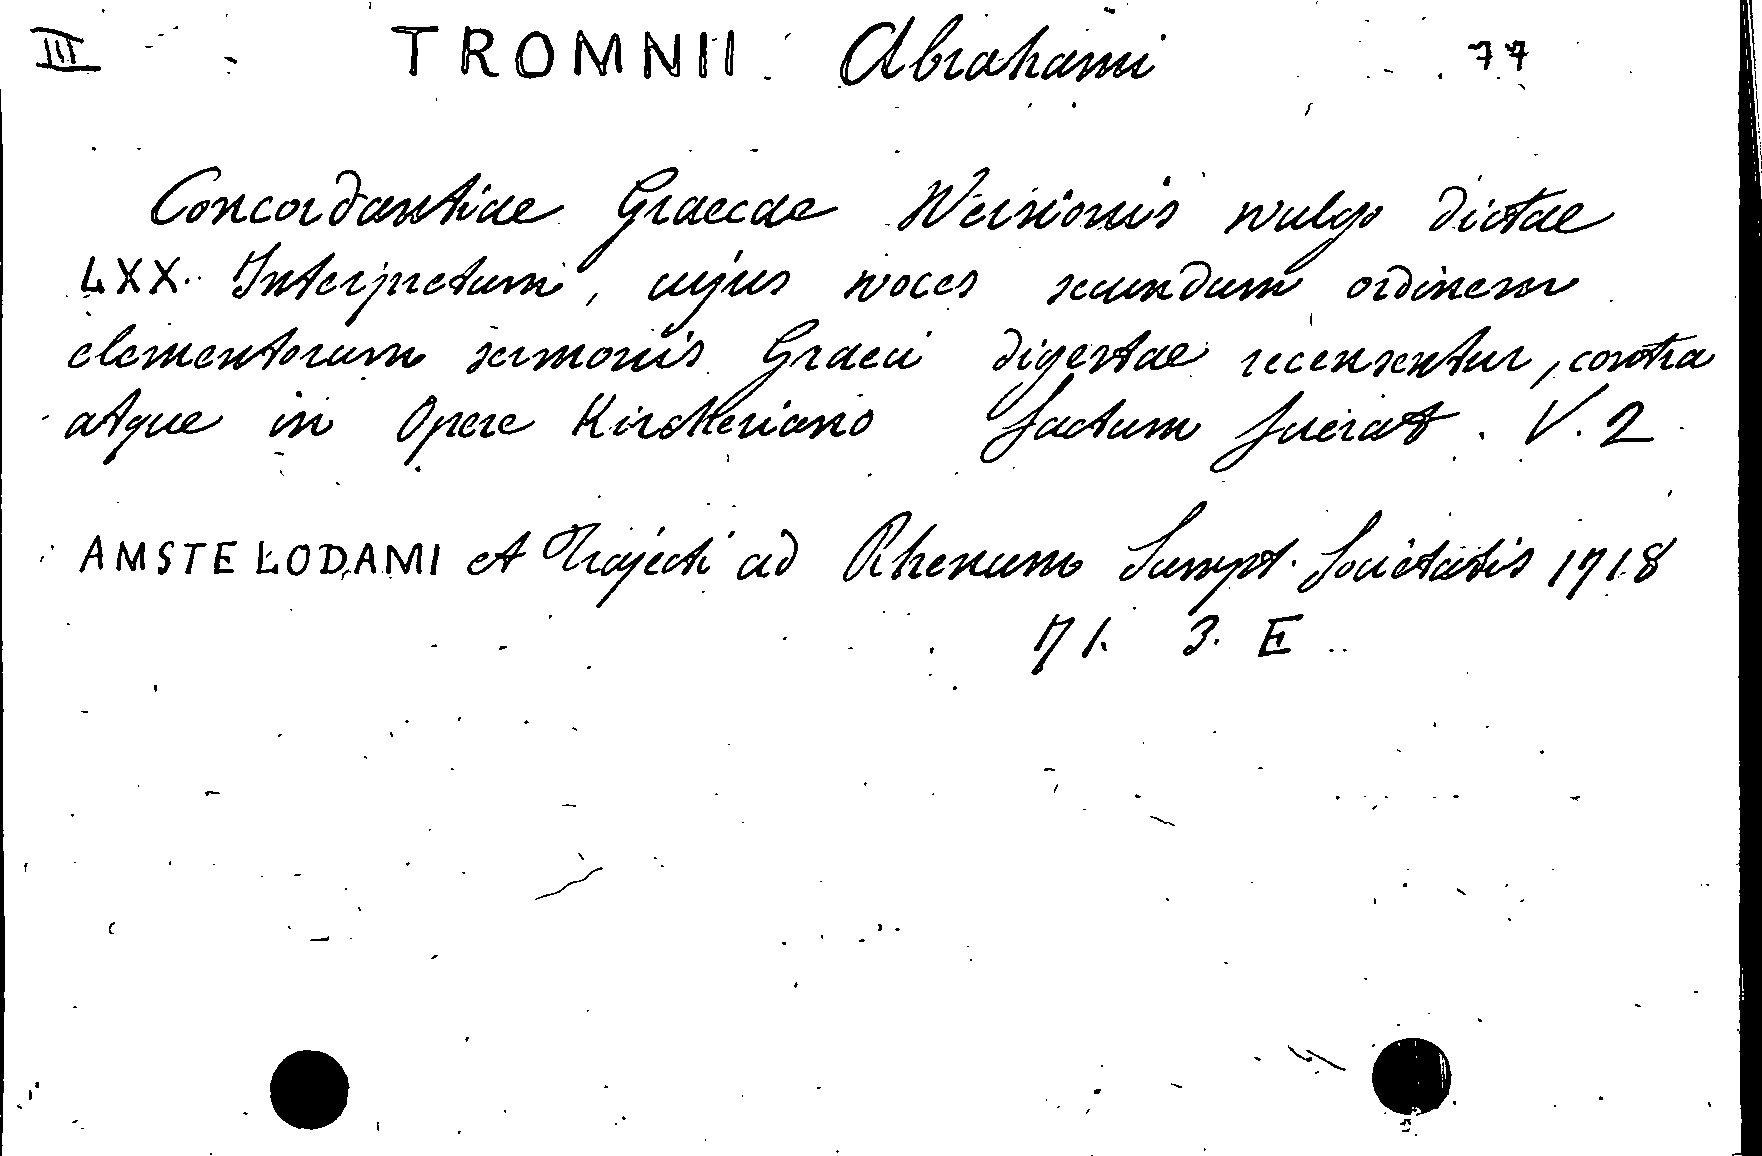 III TROMNII Abrahami 77
Concordantiae Graecae Versionis vulgo dictae
LXX. Interpretum, cujus voces secundum ordinem
elementorum sermonis Graeci digestae recensentur, contra
atque in Opere Kircheriano factum fuerat. V. 2
AMSTELODAMI et Trajecti ad Rhenum Sumpt. Societatis 1718
71. 3. E